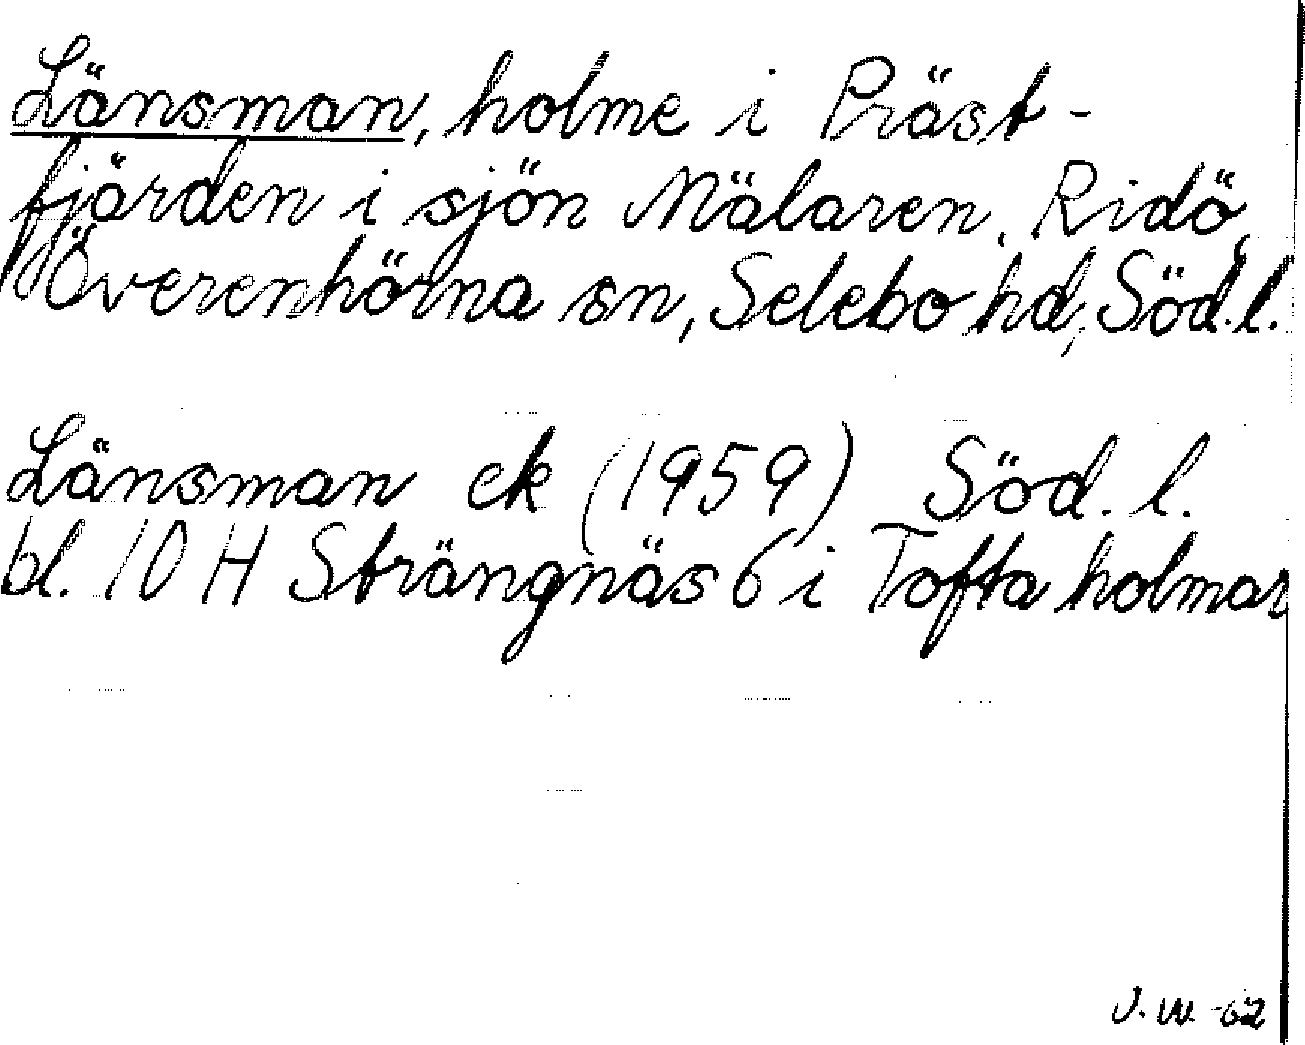 Länsman, holme i Präst-
fjärden i sjön Mälaren, Ridö,
Överenhörna sn, Selebo hd, Söd.l.
Länsman ek (1959) Söd. l.
bl. 10 H Strängnäs 6 i Tofta holmar
J. W. -62